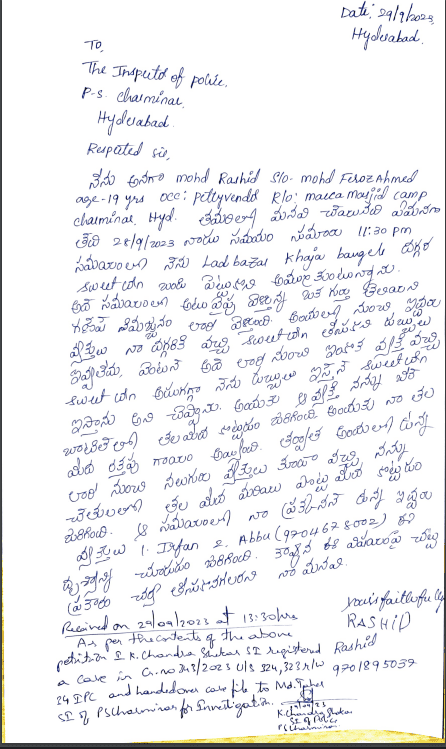 Date: 29/9/2023
Hyderabad.
To,
The Inspector of police,
P.S. charminar,
Hyderabad.
Respected sir,
నేను అనగా mohd Rashid S/o. mohd Feroz Ahmed
age-19 yrs occ: pettyvendor R/o: macca masjid camp
charminar, Hyd. తమరితో మనవి చేయునది ఏమనగా
తేది 28/9/2023 నాడు సమయం సుమారు 11:30 pm
సమయంలో నేను Lad bazar Khaja bangels దగ్గర
sweet corn బండి పెట్టుకుని అమ్ముకుంటున్నాను.
అదే సమయంలో అటువైపు
గణేష్ నిమజ్జనం లారి వెళ్తుంది. అందులో నుంచి ఇద్దరు
వ్యక్తులు నా దగ్గరికి వచ్చి sweet corn తీసుకుని డబ్బులు
ఇవ్వలేదు, వెంటనే అదే లారి నుంచి ఇంకొక వ్యక్తి వచ్చి
sweet corn అడుగగా నేను డబ్బులు ఇస్తేనే sweet corn
ఇస్తాను అని చెప్పాను. అందుకు ఆ వ్యక్తి నన్ను
తలమీద కొట్టడం జరిగింది. అందుకు నా తల
మీద రక్తపు గాయం అయ్యింది. తర్వాత అందులో ఉన్న
లారి నుంచి నలుగురు వ్యక్తులు కూడా వచ్చి నన్ను
చేతులతో తల మీద మరియు పొట్ట మీద కొట్టడం
జరిగింది. ఆ సమయంలో నా ఉన్న ఇద్దరు
వ్యక్తులు 1. Irfan 2. Abbu (9704678002) ఈ
దృశ్యాన్ని చూడడం జరిగింది. కావున ఈ విషయంపై చట్ట
ప్రకారం చర్య తీసుకోగలరని నా మనవి.
yours faithfully
RASHID
Rashid
9701895037
Received on 29/09/2023 at 13:30hrs
As per the contents of the above
petition I K. Chandra Shekar SI registered
a case in Cr.no 243/2023 U/s 324, 323 r/w
34 IPC and handedover case file to Md.
SI of PS Charminar for Investigation.
K. Chandra Shekar
SI of Police
PS Charminar